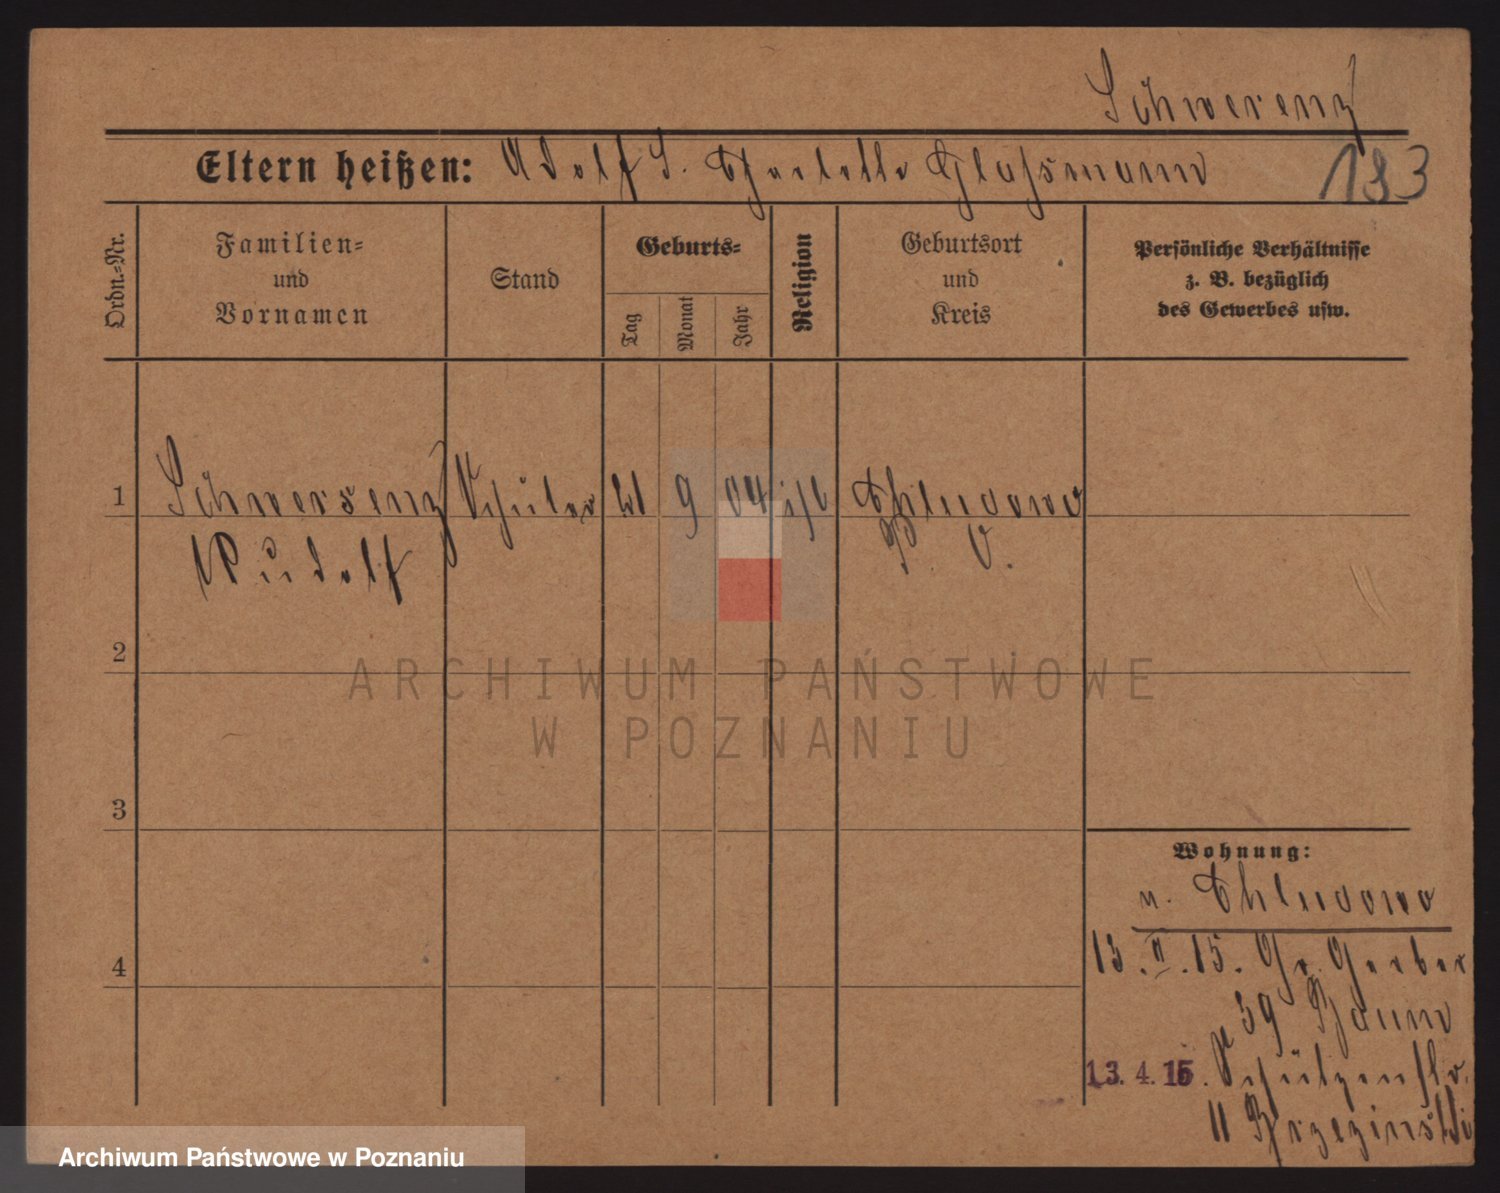 Schwerenz
Eltern heißen: Adolf S. Charlotte Glassmann
183
Ordn.-Nr.
Familien-
und
Vornamen
Stand
Geburts-
Tag
Monat
Jahr
Religion
Geburtsort
und
Kreis
Persönliche Verhältnisse
z. B. bezüglich
des Gewerbes usw.
1
Schwersenz Schüler 21 9 04 isl Chludowo
Rudolf P. O.
2
ARCHIWUM PAŃSTWOWE
W POZNANIU
3
Wohnung:
n. Chludowo
4
13. II. 15. Gr. Gerber
39 Baum
13. 4. 15. Schützenstr.
11 Brzezinski
Archiwum Państwowe w Poznaniu